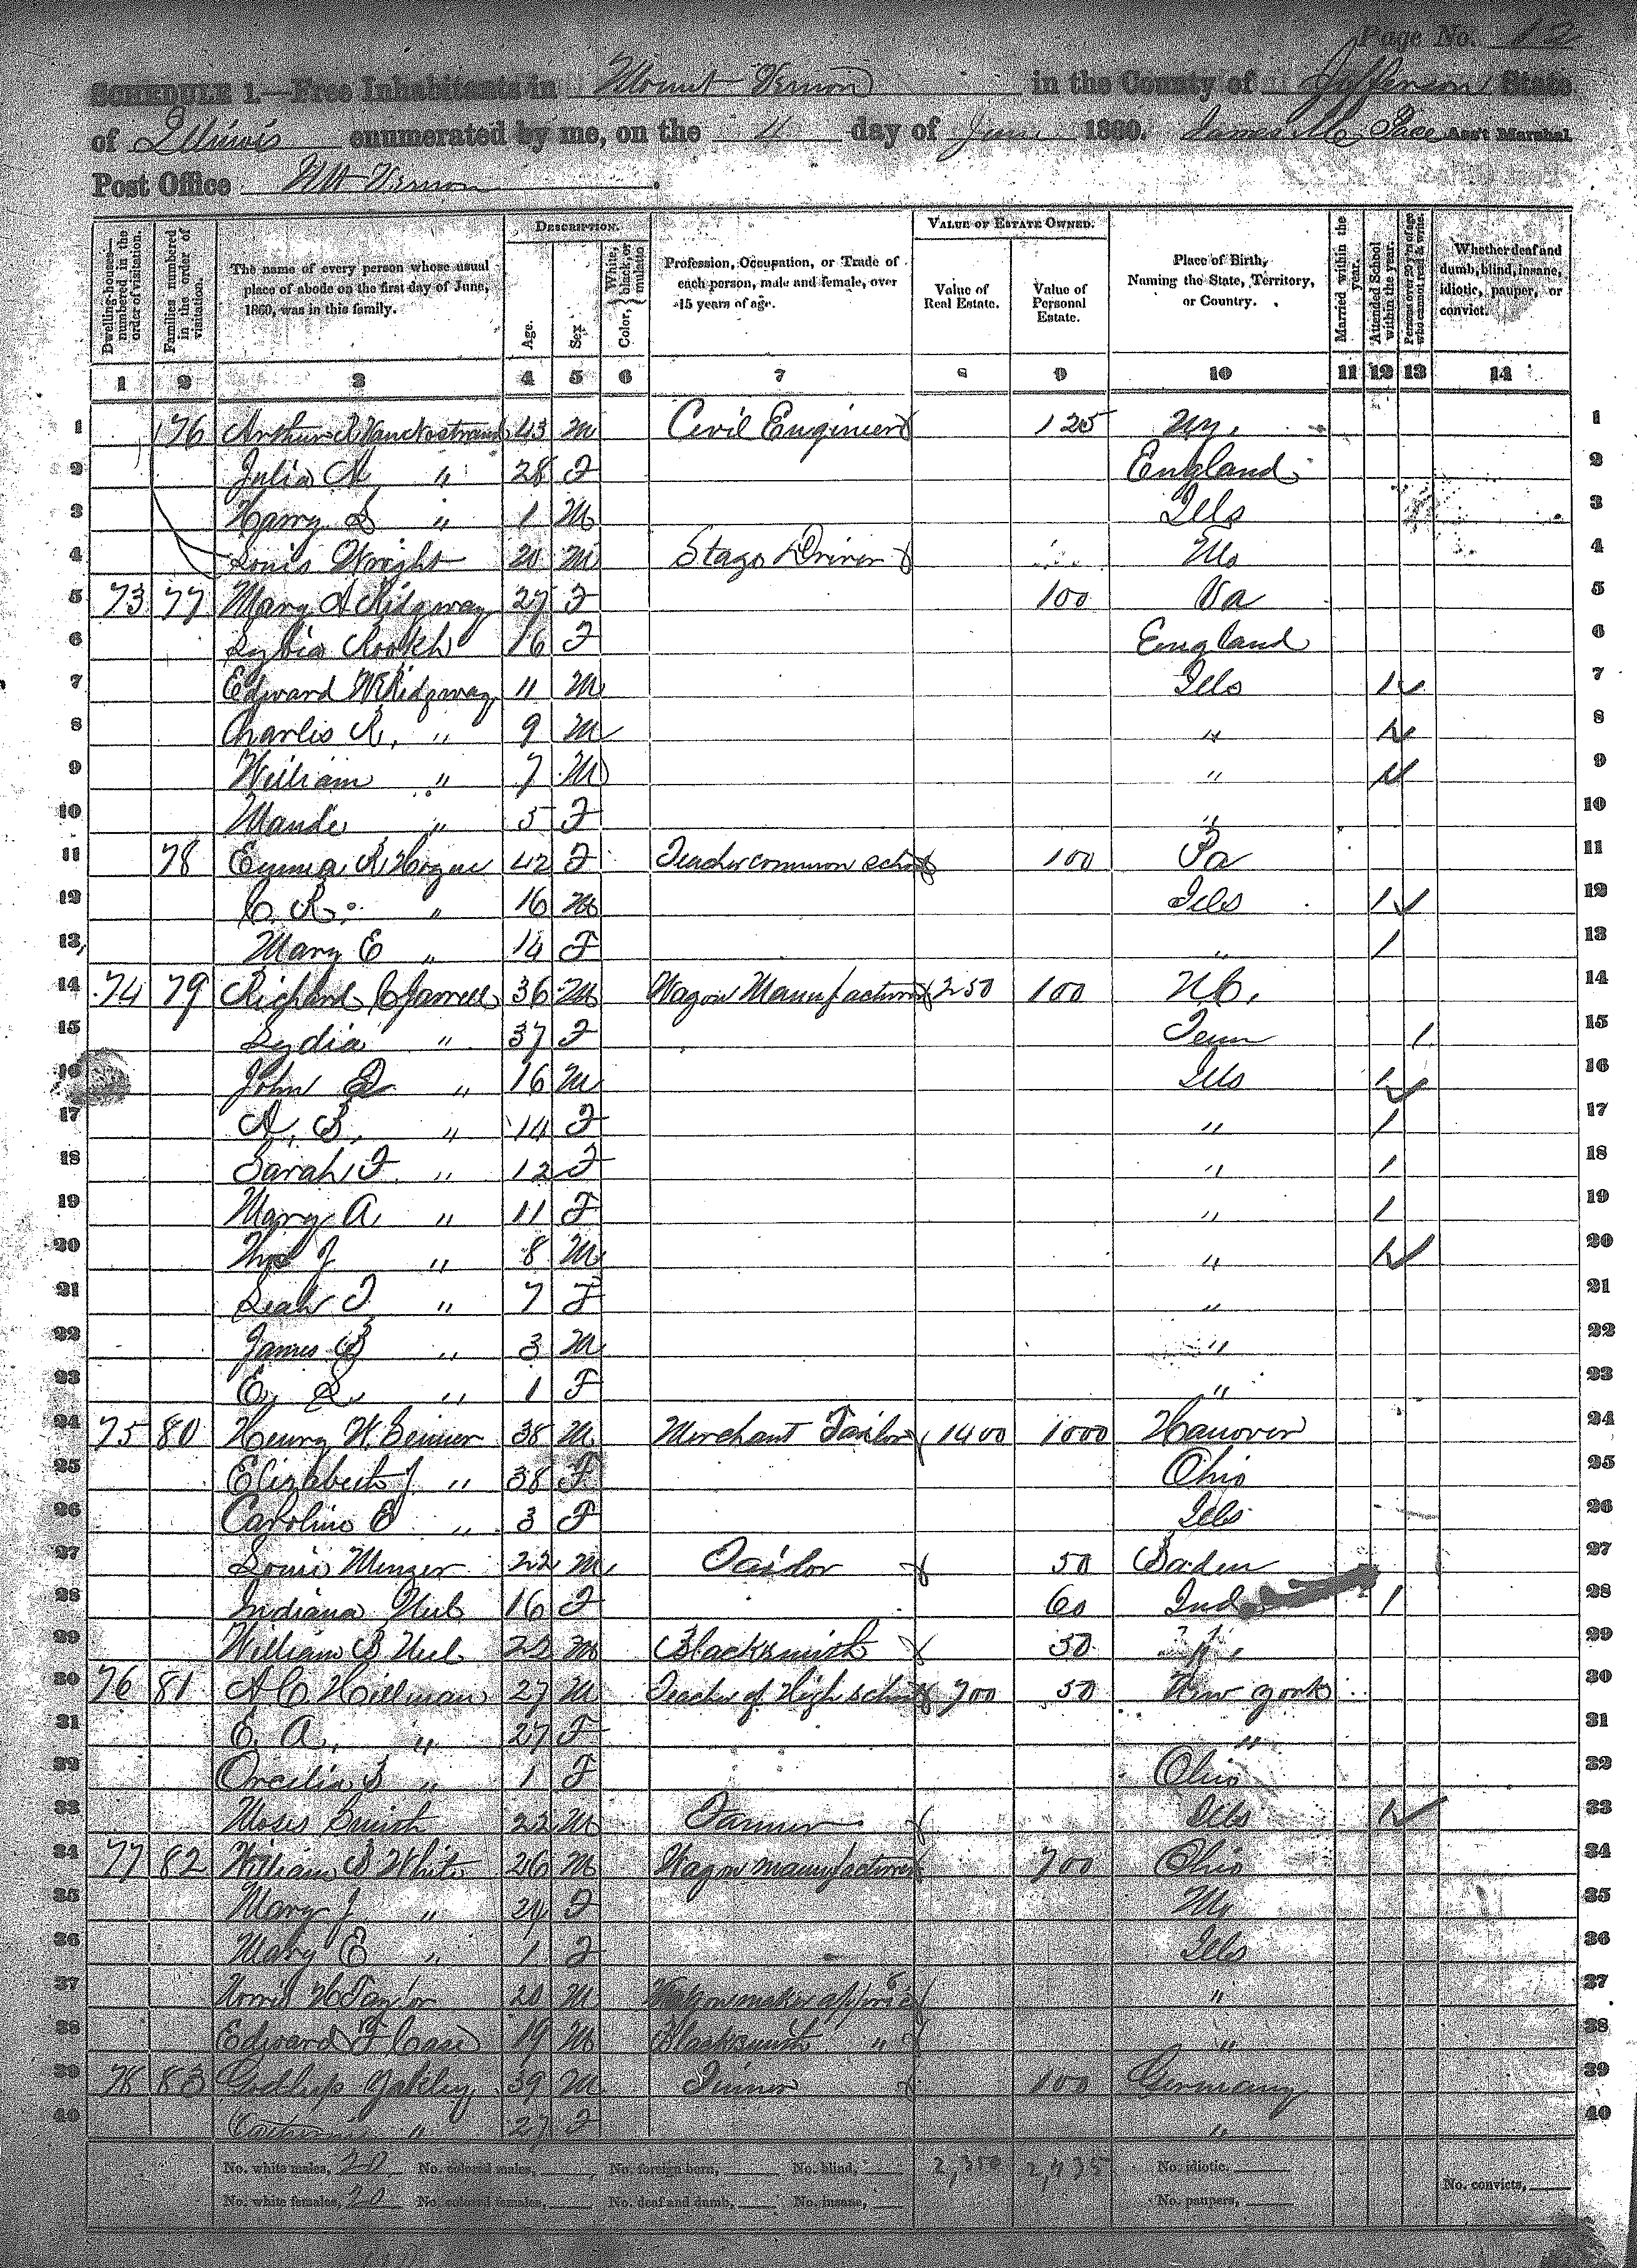 Page No. 12
SCHEDULE 1.—Free Inhabitants in Mount Vernon in the County of Jefferson State
of Illinois enumerated by me, on the 4 day of June 1860. James M Pace Ass't Marshal
Post Office Mt Vernon
Dwelling-houses—numbered in the order of visitation.
Families numbered in the order of visitation.
The name of every person whose usual place of abode on the first day of June, 1860, was in this family.
DESCRIPTION.
Age.
Sex.
Color, { White, black, or mulatto.
Profession, Occupation, or Trade of each person, male and female, over 15 years of age.
VALUE OF ESTATE OWNED.
Value of Real Estate.
Value of Personal Estate.
Place of Birth, Naming the State, Territory, or Country.
Married within the year.
Attended School within the year.
Persons over 20 y'rs of age who cannot read & write.
Whether deaf and dumb, blind, insane, idiotic, pauper, or convict.
1 2 3 4 5 6 7 8 9 10 11 12 13 14
1 76 Arthur 43 M Civil Engineer 125 NY. 1
2 Julia A " 28 F England 2
3 Harry S " 1 M Ills 3
4 Louis Wright 20 M Stage Driver 4
5 73 77 Mary A Ridgway 27 F 100 Va 5
6 16 F England 6
7 Edward Ridgway 11 M Ills 1 7
8 Charlis R. " 9 M " 1 8
9 William " 7 M " 1 9
10 Maude " 5 F " 10
11 78 Emma R Hogue 42 F Teacher common school 100 Pa 11
12 C. R. " 16 M Ills 1 12
13 Mary E " 14 F " 1 13
14 74 79 Richard C 36 M Wagon Manufacturer 250 100 NC. 14
15 Lydia " 37 F Tenn 1 15
16 John " 16 M Ills 1 16
17 A. B. " 14 F " 1 17
18 Sarah F. " 12 F " 1 18
19 Mary A " 11 F " 1 19
20 Thos J " 8 M " 1 20
21 Leah F " 7 F " 21
22 James B " 3 M " 22
23 E. L. " 1 F " 23
24 75 80 Henry W. 38 M Merchant Tailor 1400 1000 Hanover 24
25 Elizabeth J " 38 F Ohio 25
26 Caroline E " 3 F Ills 26
27 Louis Menzer 22 M Tailor 50 Baden 27
28 Indiana 16 F 60 Ind 1 28
29 William B 22 M Blacksmith 50 " 29
30 76 81 A C Hillman 27 M Teacher of High school 700 50 New York 30
31 E. A. " 27 F " 31
32 " 1 F Ohio 32
33 Moses Smith 22 M Ills 1 33
34 77 82 William B White 26 M Wagon manufacturer 700 Ohio 34
35 Mary J " 24 F 35
36 Mary E " 1 F Ills 36
37 Taylor 20 M Wagon maker " 37
38 Edward F Case 19 M Blacksmith " " 38
39 78 83 39 M Tinner 100 Germany 39
40 " 27 F " 40
No. white males, 20 No. colored males, No. foreign born, No. blind, 2,350 2,435 No. idiotic.
No. white females, 20 No. colored females, No. deaf and dumb, No. insane, No. paupers, No. convicts,